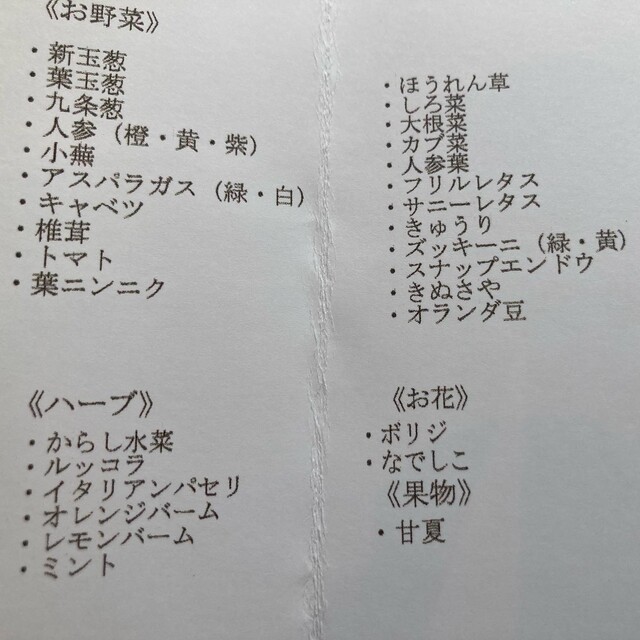 《お野菜》
・新玉葱
・葉玉葱
・九条葱
・人参（橙・黄・紫）
・小蕪
・アスパラガス（緑・白）
・キャベツ
・椎茸
・トマト
・葉ニンニク
・ほうれん草
・しろ菜
・大根菜
・カブ菜
・人参葉
・フリルレタス
・サニーレタス
・きゅうり
・ズッキーニ（緑・黄）
・スナップエンドウ
・きぬさや
・オランダ豆
《ハーブ》
・からし水菜
・ルッコラ
・イタリアンパセリ
・オレンジバーム
・レモンバーム
・ミント
《お花》
・ボリジ
・なでしこ
《果物》
・甘夏